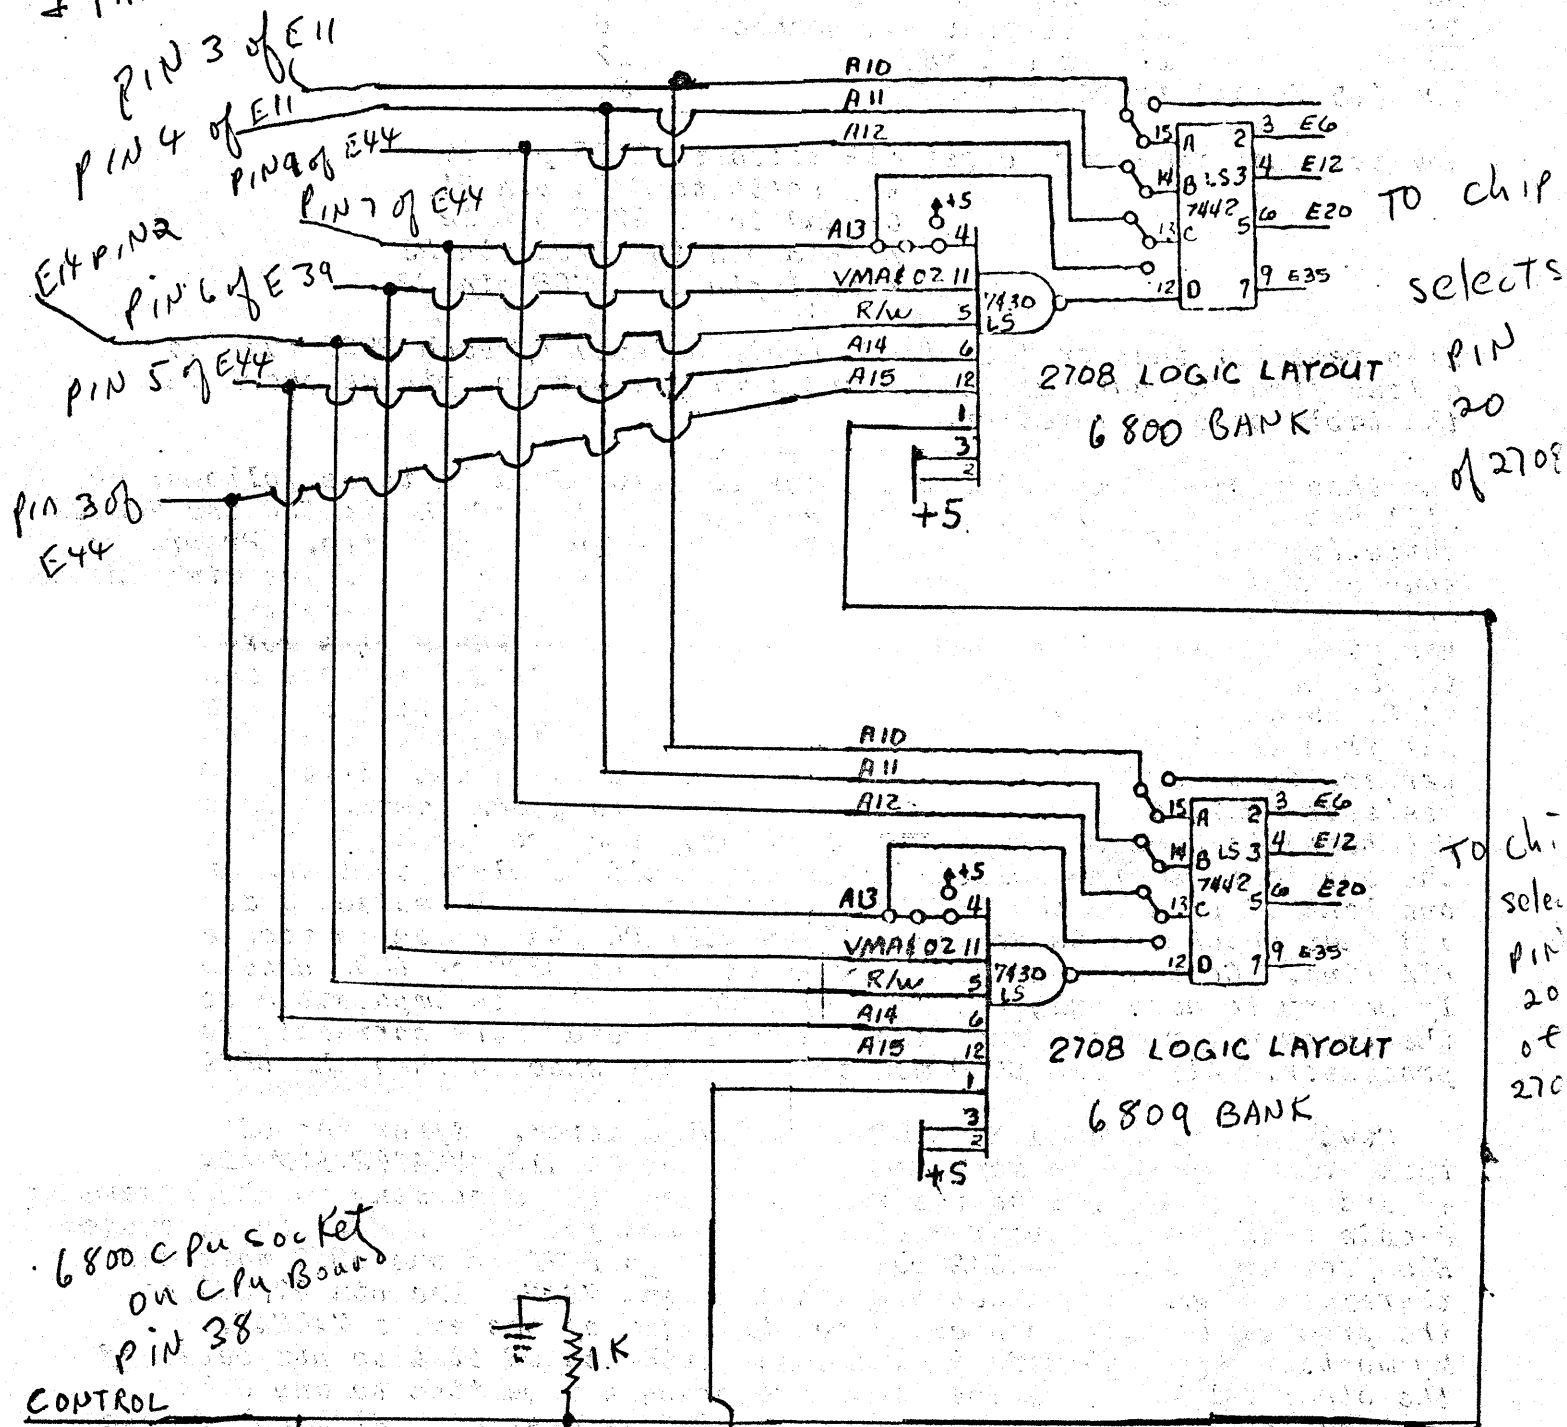 PIN 3 of E11
PIN 4 of E11
PIN 9 of E44
PIN 7 of E44
E14 PIN 2
PIN 6 of E39
PIN 5 of E44
PIN 3 of
E44
A10
A11
A12
A13
+5
4
VMA&02 11
R/W 5
A14 6
A15 12
1
3
2
+5
7430
LS
15 A 2 3 E6
14 B LS 3 4 E12
7442
13 C 5 6 E20
12 D 7 9 E35
TO chip
selects
PIN
20
of 2708
2708 LOGIC LAYOUT
6800 BANK
A10
A11
A12
A13
+5
4
VMA&02 11
R/W 5
A14 6
A15 12
1
3
2
+5
7430
LS
15 A 2 3 E6
14 B LS 3 4 E12
7442
13 C 5 6 E20
12 D 7 9 E35
TO chi
selec
PIN
20
of
270
2708 LOGIC LAYOUT
6809 BANK
6800 CPU Socket
on CPU Board
PIN 38
1K
CONTROL